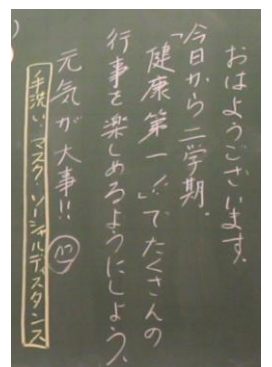 おはようございます。
今日から二学期。
「健康第一！」でたくさんの
行事を楽しめるようにしよう。
元気が大事!!
手洗い・マスク・ソーシャルディスタンス